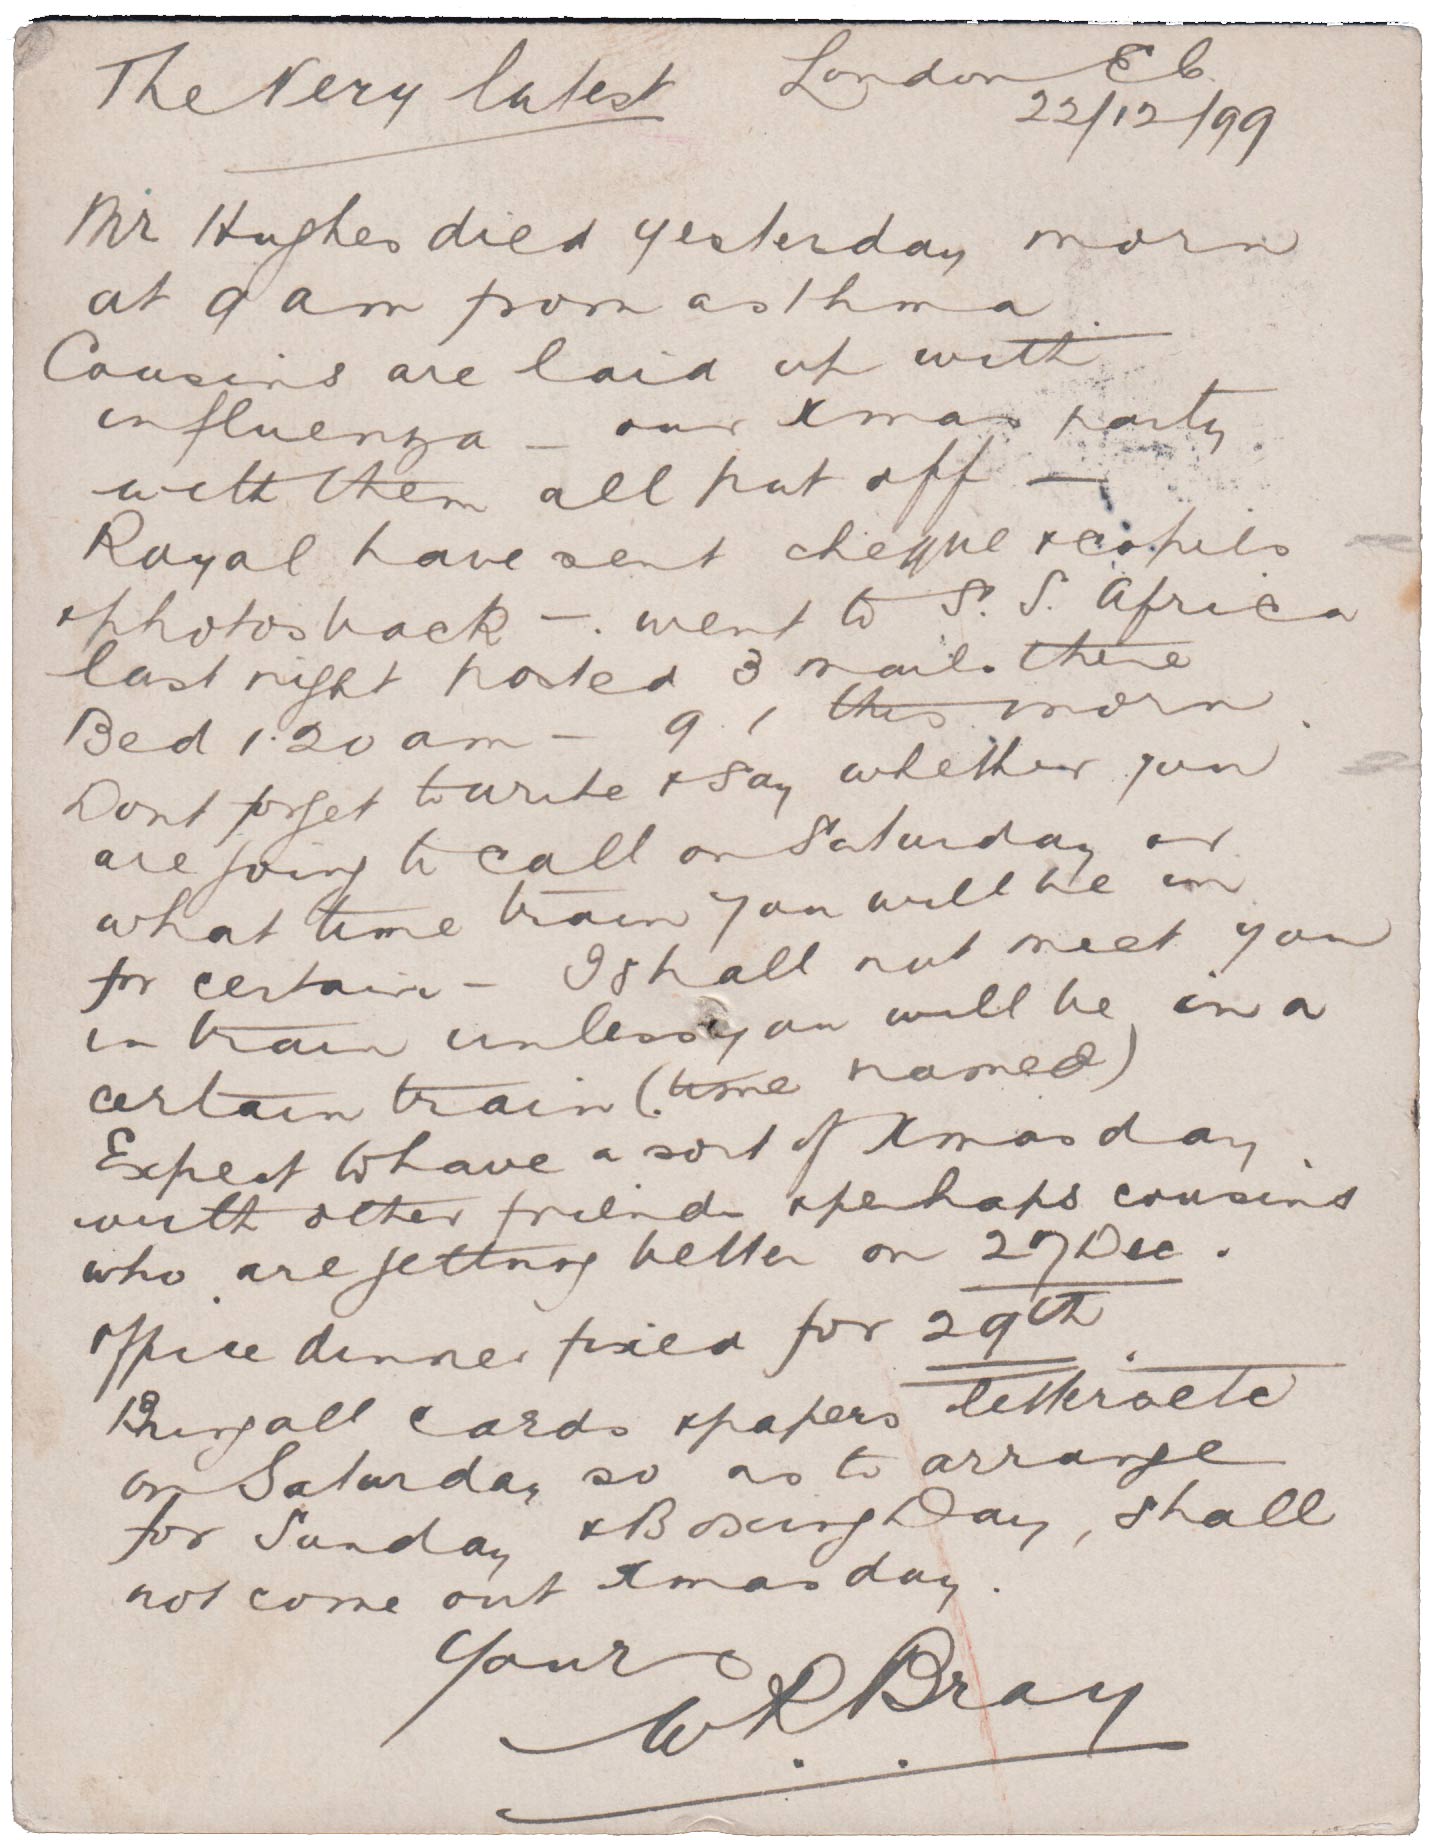 The Very latest
London E C
22/12/99
Mr Hughes died yesterday morn
at 9 am from asthma.
Cousins are laid up with
influenza – our Xmas party
with them all put off –
Royal have sent cheque & copies
& photos back –. went to S. S. Africa
last night posted 3 mails there
Bed 1.20 am – 9.1 this morn.
Dont forget to write & say whether you
are going to call on Saturday or
what time train you will be in
for certain – I shall not meet you
in train unless you will be in a
certain train (time named)
Expect to have a sort of Xmas day
with other friends & perhaps cousins
who are getting better on 27 Dec.
office dinner fixed for 29th.
Bring all cards & papers letters etc
on Saturday so as to arrange
for Sunday & Boxing Day, shall
not come out Xmas day.
Yours
W. R. Bray